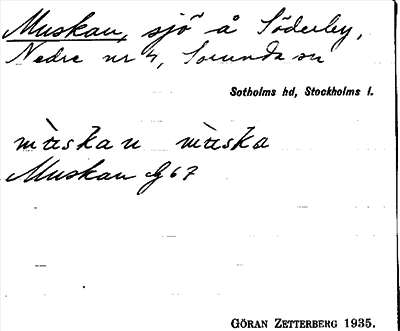 Muskan, sjö å Söderby,
Nedre nr 4, Sorunda sn
Sotholms hd, Stockholms l.
mùskan mùska
Muskan G 67
GÖRAN ZETTERBERG 1935.